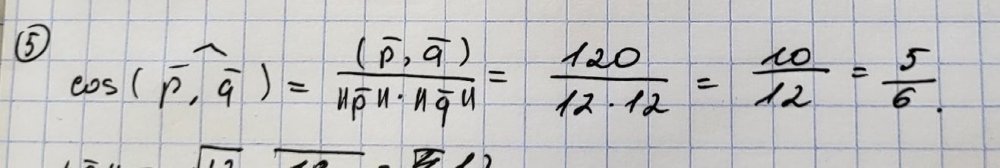 ⑤ cos( p̄,^ q̄ ) = (p̄, q̄) / ‖p̄‖ · ‖q̄‖ = 120 / 12 · 12 = 10 / 12 = 5 / 6 .